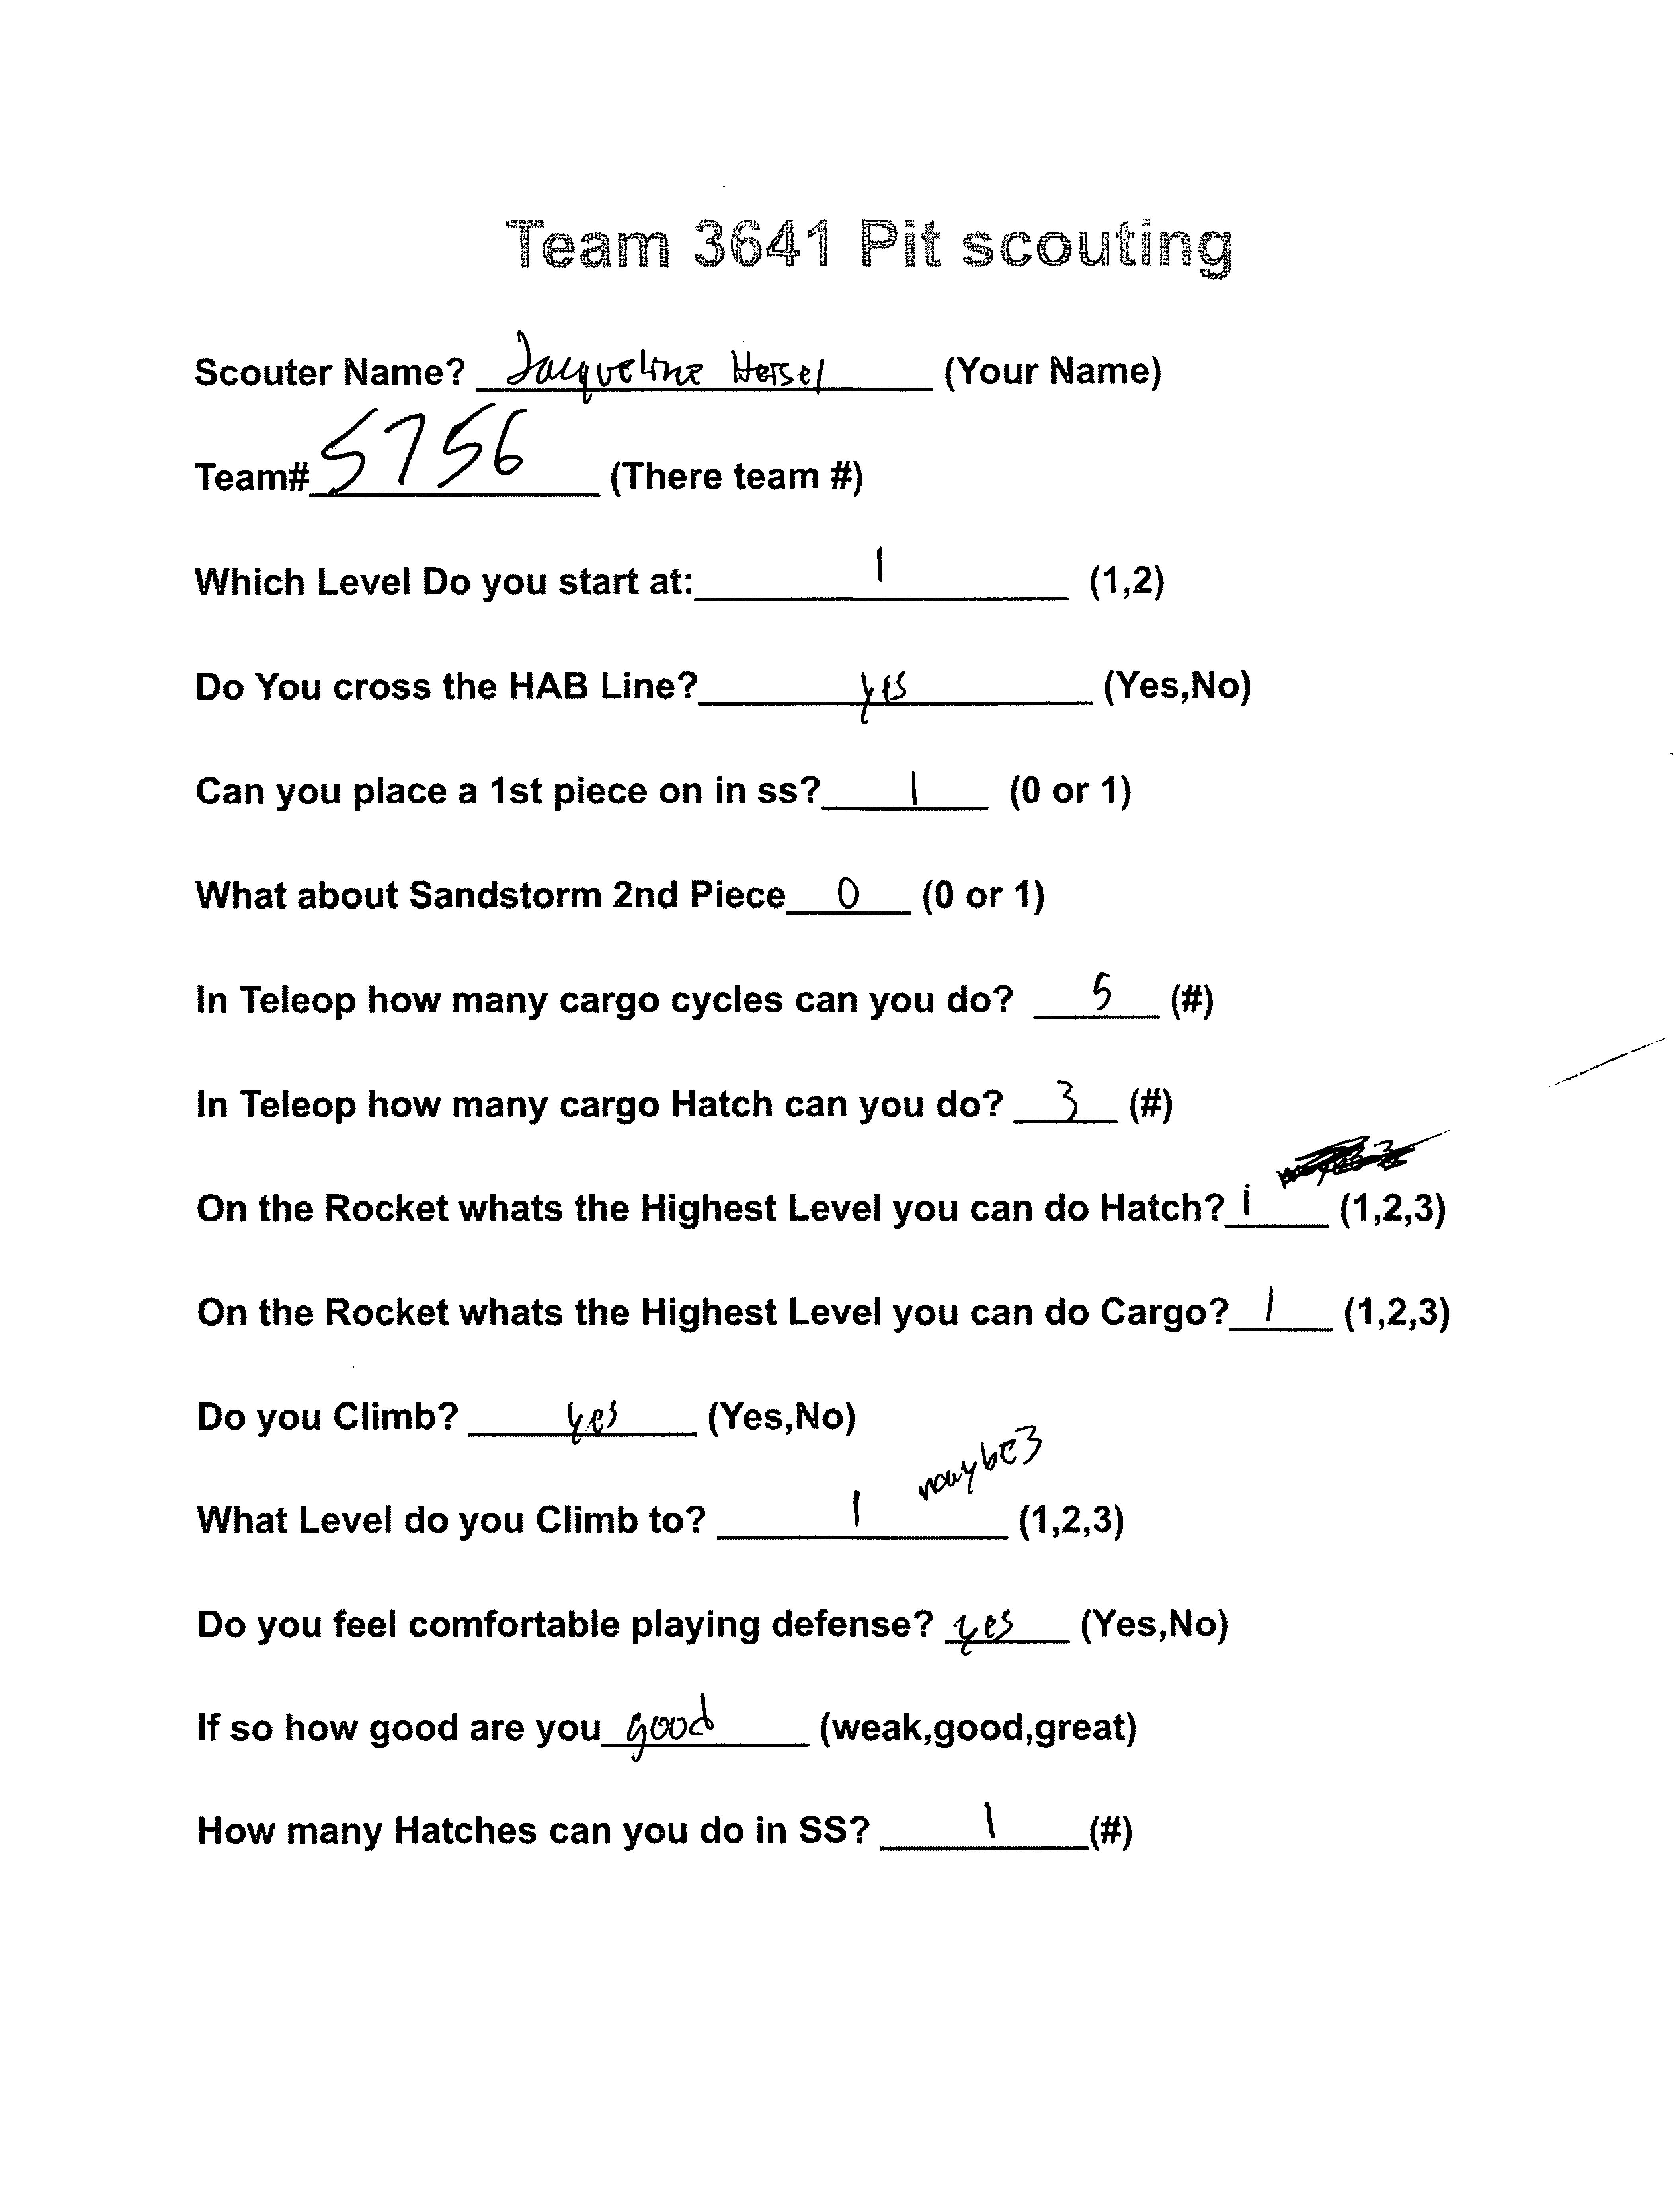 Team 3641 Pit scouting
Scouter Name? Jacqueline Hersel (Your Name)
Team# 5756 (There team #)
Which Level Do you start at: 1 (1,2)
Do You cross the HAB Line? yes (Yes,No)
Can you place a 1st piece on in ss? 1 (0 or 1)
What about Sandstorm 2nd Piece 0 (0 or 1)
In Teleop how many cargo cycles can you do? 5 (#)
In Teleop how many cargo Hatch can you do? 3 (#)
On the Rocket whats the Highest Level you can do Hatch? 1 (1,2,3)
On the Rocket whats the Highest Level you can do Cargo? 1 (1,2,3)
Do you Climb? yes (Yes,No)
What Level do you Climb to? 1 maybe 3 (1,2,3)
Do you feel comfortable playing defense? yes (Yes,No)
If so how good are you good (weak,good,great)
How many Hatches can you do in SS? 1 (#)